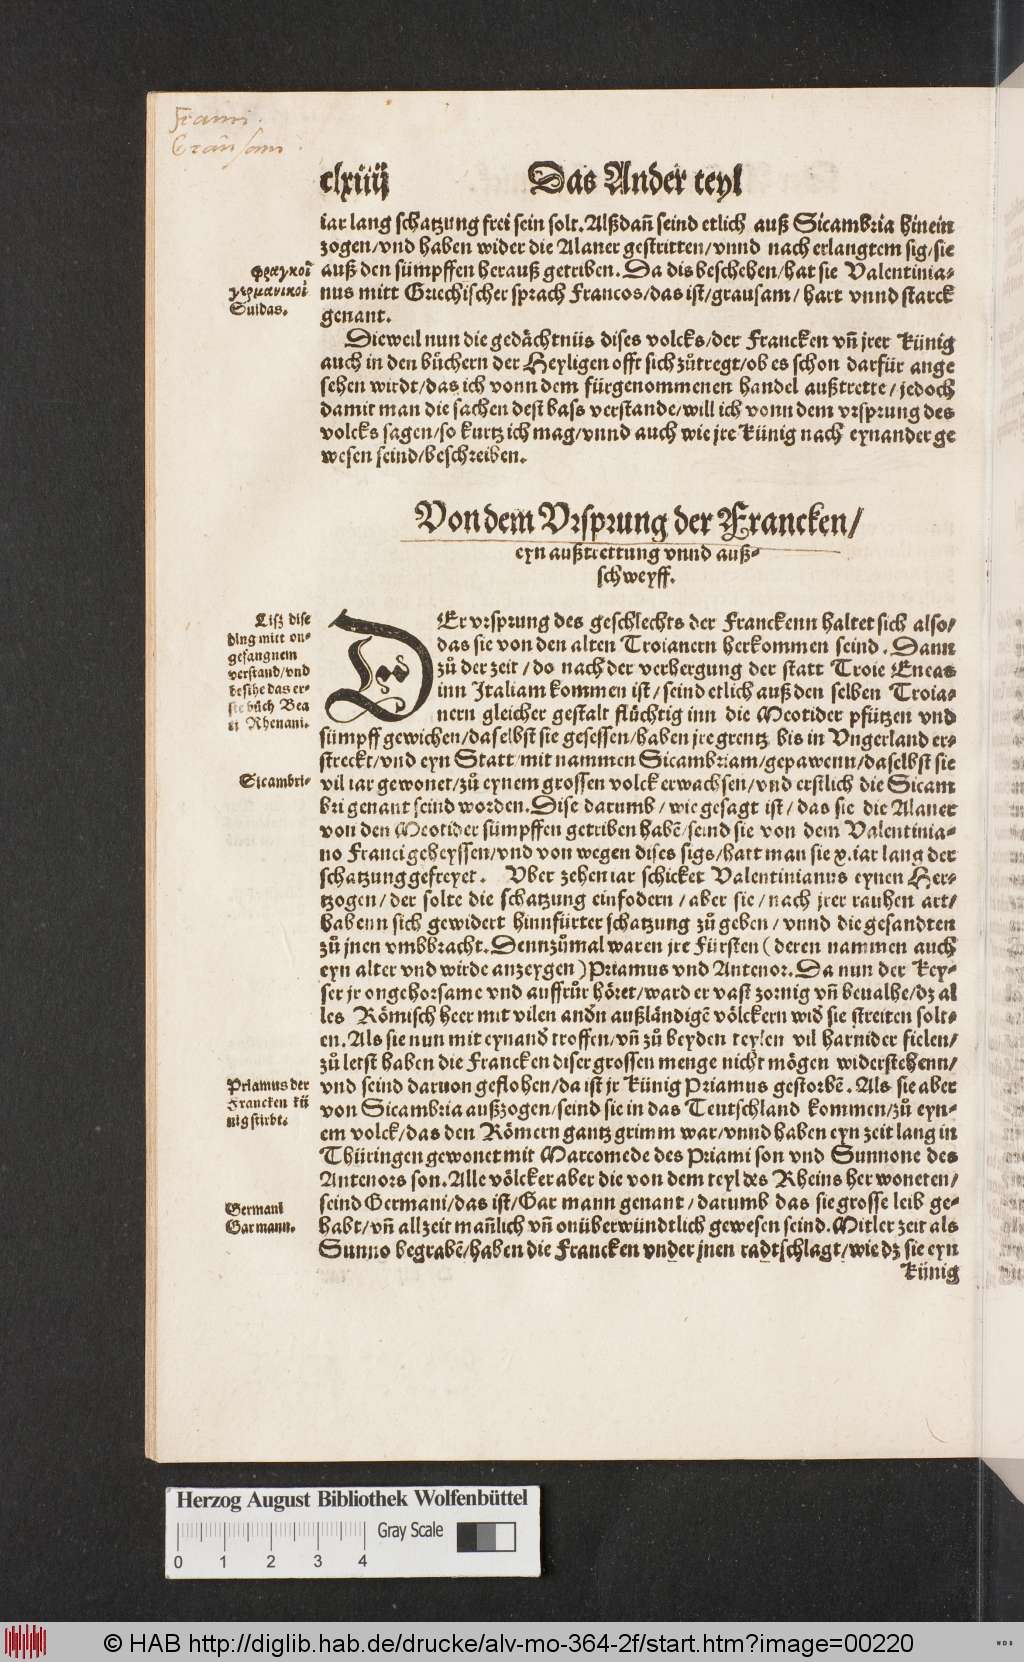 Franci.
Grausam.
clxiiij
Das Ander teyl
iar lang schatzung frei sein solt. Alßdañ seind etlich auß Sicambria hinein
zogen/vnd haben wider die Alaner gestritten/vnnd nach erlangtem sig/sie
auß den sümpffen herauß getriben. Da dis beschehen/hat sie Valentinia-
nus mitt Griechischer sprach Francos/das ist/grausam/hart vnnd starck
genant.
φραγκοῖ
γερμανικοῖ
Suidas.
Dieweil nun die gedächtnüs dises volcks/der Francken vñ jrer Künig
auch in den bůchern der Heyligen offt sich zůtregt/ob es schon darfür ange
sehen wirdt/das ich vonn dem fürgenommenen handel außtrette/jedoch
damit man die sachen dest bass verstande/will ich vonn dem vrsprung des
volcks sagen/so kurtz ich mag/vnnd auch wie jre Künig nach eynander ge
wesen seind/beschreiben.
Von dem Vrsprung der Francken/
eyn außtrettung vnnd auß-
schweyff.
Lisz dise
ding mitt on-
gefangnem
verstand/vnd
besihe das er-
ste bůch Bea
ti Rhenani.
DEr vrsprung des geschlechts der Franckenn haltet sich also/
das sie von den alten Troianern herkommen seind. Dann
zů der zeit/do nach der verhergung der statt Troie Eneas
inn Italiam kommen ist/seind etlich auß den selben Troia-
nern gleicher gestalt flüchtig inn die Meotider pfützen vnd
sümpff gewichen/daselbst sie gesessen/haben jre grentz bis in Vngerland er-
streckt/vnd eyn Statt/mit nammen Sicambriam/gepawenn/daselbst sie
vil iar gewonet/zů eynem grossen volck erwachsen/vnd erstlich die Sicam
bri genant seind worden. Dise darumb/wie gesagt ist/das sie die Alaner
von den Meotider sümpffen getriben habẽ/seind sie von dem Valentinia-
no Franci geheyssen/vnd von wegen dises sigs/hatt man sie x. iar lang der
schatzung gefreyet. Vber zehen iar schicket Valentinianus eynen Her-
tzogen/der solte die schatzung einfodern/aber sie/nach jrer rauhen art/
habenn sich gewidert hinnfürter schatzung zů geben/vnnd die gesandten
zů jnen vmbbracht. Dennzůmal waren jre Fürsten (deren nammen auch
eyn alter vnd wirde anzeygen) Priamus vnd Antenor. Da nun der Key-
ser jr ongehorsame vnd auffrůr höret/ward er vast zornig vñ beualhe/dz al
les Römisch heer mit vilen andn̄ außländigẽ völckern wid sie streiten solt-
en. Als sie nun mit eynand troffen/vñ zů beyden teylen vil harnider fielen/
zů letst haben die Francken diser grossen menge nicht mögen widerstehenn/
vnd seind daruon geflohen/da ist jr Künig Priamus gestorbẽ. Als sie aber
von Sicambria außzogen/seind sie in das Teutschland kommen/zů eyn-
em volck/das den Römern gantz grimm war/vnnd haben eyn zeit lang in
Thüringen gewonet mit Marcomede des Priami son vnd Sunnone des
Antenors son. Alle völcker aber die von dem teyl des Rheins her woneten/
seind Germani/das ist/Gar mann genant/darumb das sie grosse leib ge-
habt/vñ allzeit mañlich vñ onüberwündtlich gewesen seind. Mitler zeit als
Sunno begrabẽ/haben die Francken vnder jnen radtschlagt/wie dz sie eyn
Künig
Sicambri-
Priamus der
Francken kü
nig stirbt.
Germani
Gar mann.
Herzog August Bibliothek Wolfenbüttel
Gray Scale
0 1 2 3 4
© HAB http://diglib.hab.de/drucke/alv-mo-364-2f/start.htm?image=00220